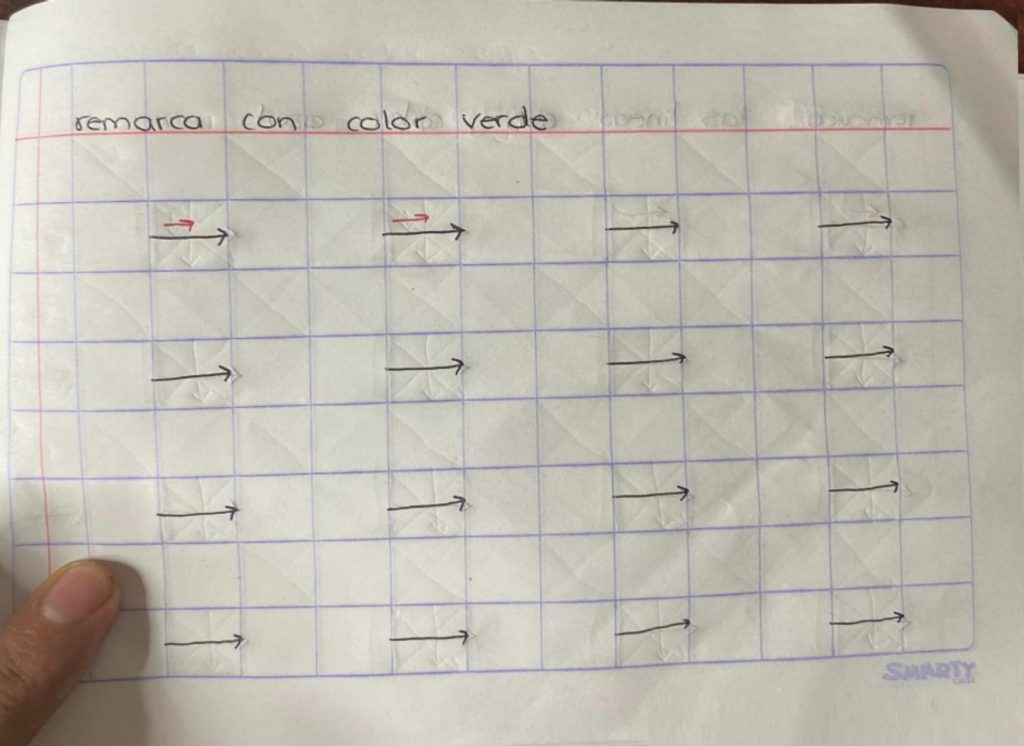 remarca con color verde
SMARTY